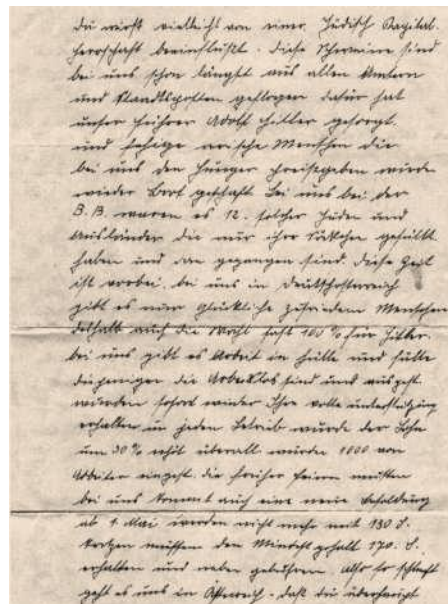 du wirst vielleicht von einer Jüdisch Kapital-
herrschaft beeinflußt. diese Schweine sind
bei uns schon längst aus allen Ämtern
und Staadtsposten geflogen dafür hat
unser Führer Adolf Hitler gesorgt
und fähige arische Menschen die
bei uns den Hunger preisgeben würde
wieder Brot geschaft bei uns bei der
B.B. waren es 12. solcher Juden und
Ausländer die nur ihre Säckchen gefüllt
haben und dan gegangen sind. diese Zeit
ist vorbei. bei uns in Deutschösterreich
gibt es nur glückliche zufriedene Menschen
deshalb auch die Wahl fast 100% für Hitler.
bei uns gibt es Arbeit in Hülle und Fülle
diejenigen die Arbeitslos sind und ausgest.
wurden sofort wieder Ihre volle unterstützung
erhalten in jeden Betrieb wurde der Lohn
um 30% erhöt überall wurden 1000 von
Arbeiter eingest. die früher feiern musten
bei uns kommt auch eine neue Besoldung
ab 1 Mai werden nicht mehr mit 130 S.
müssen den Mindest gehalt 170. S.
erhalten und neben gebühren. Also so schlecht
geht es uns in Österreich. daß die überhaupt